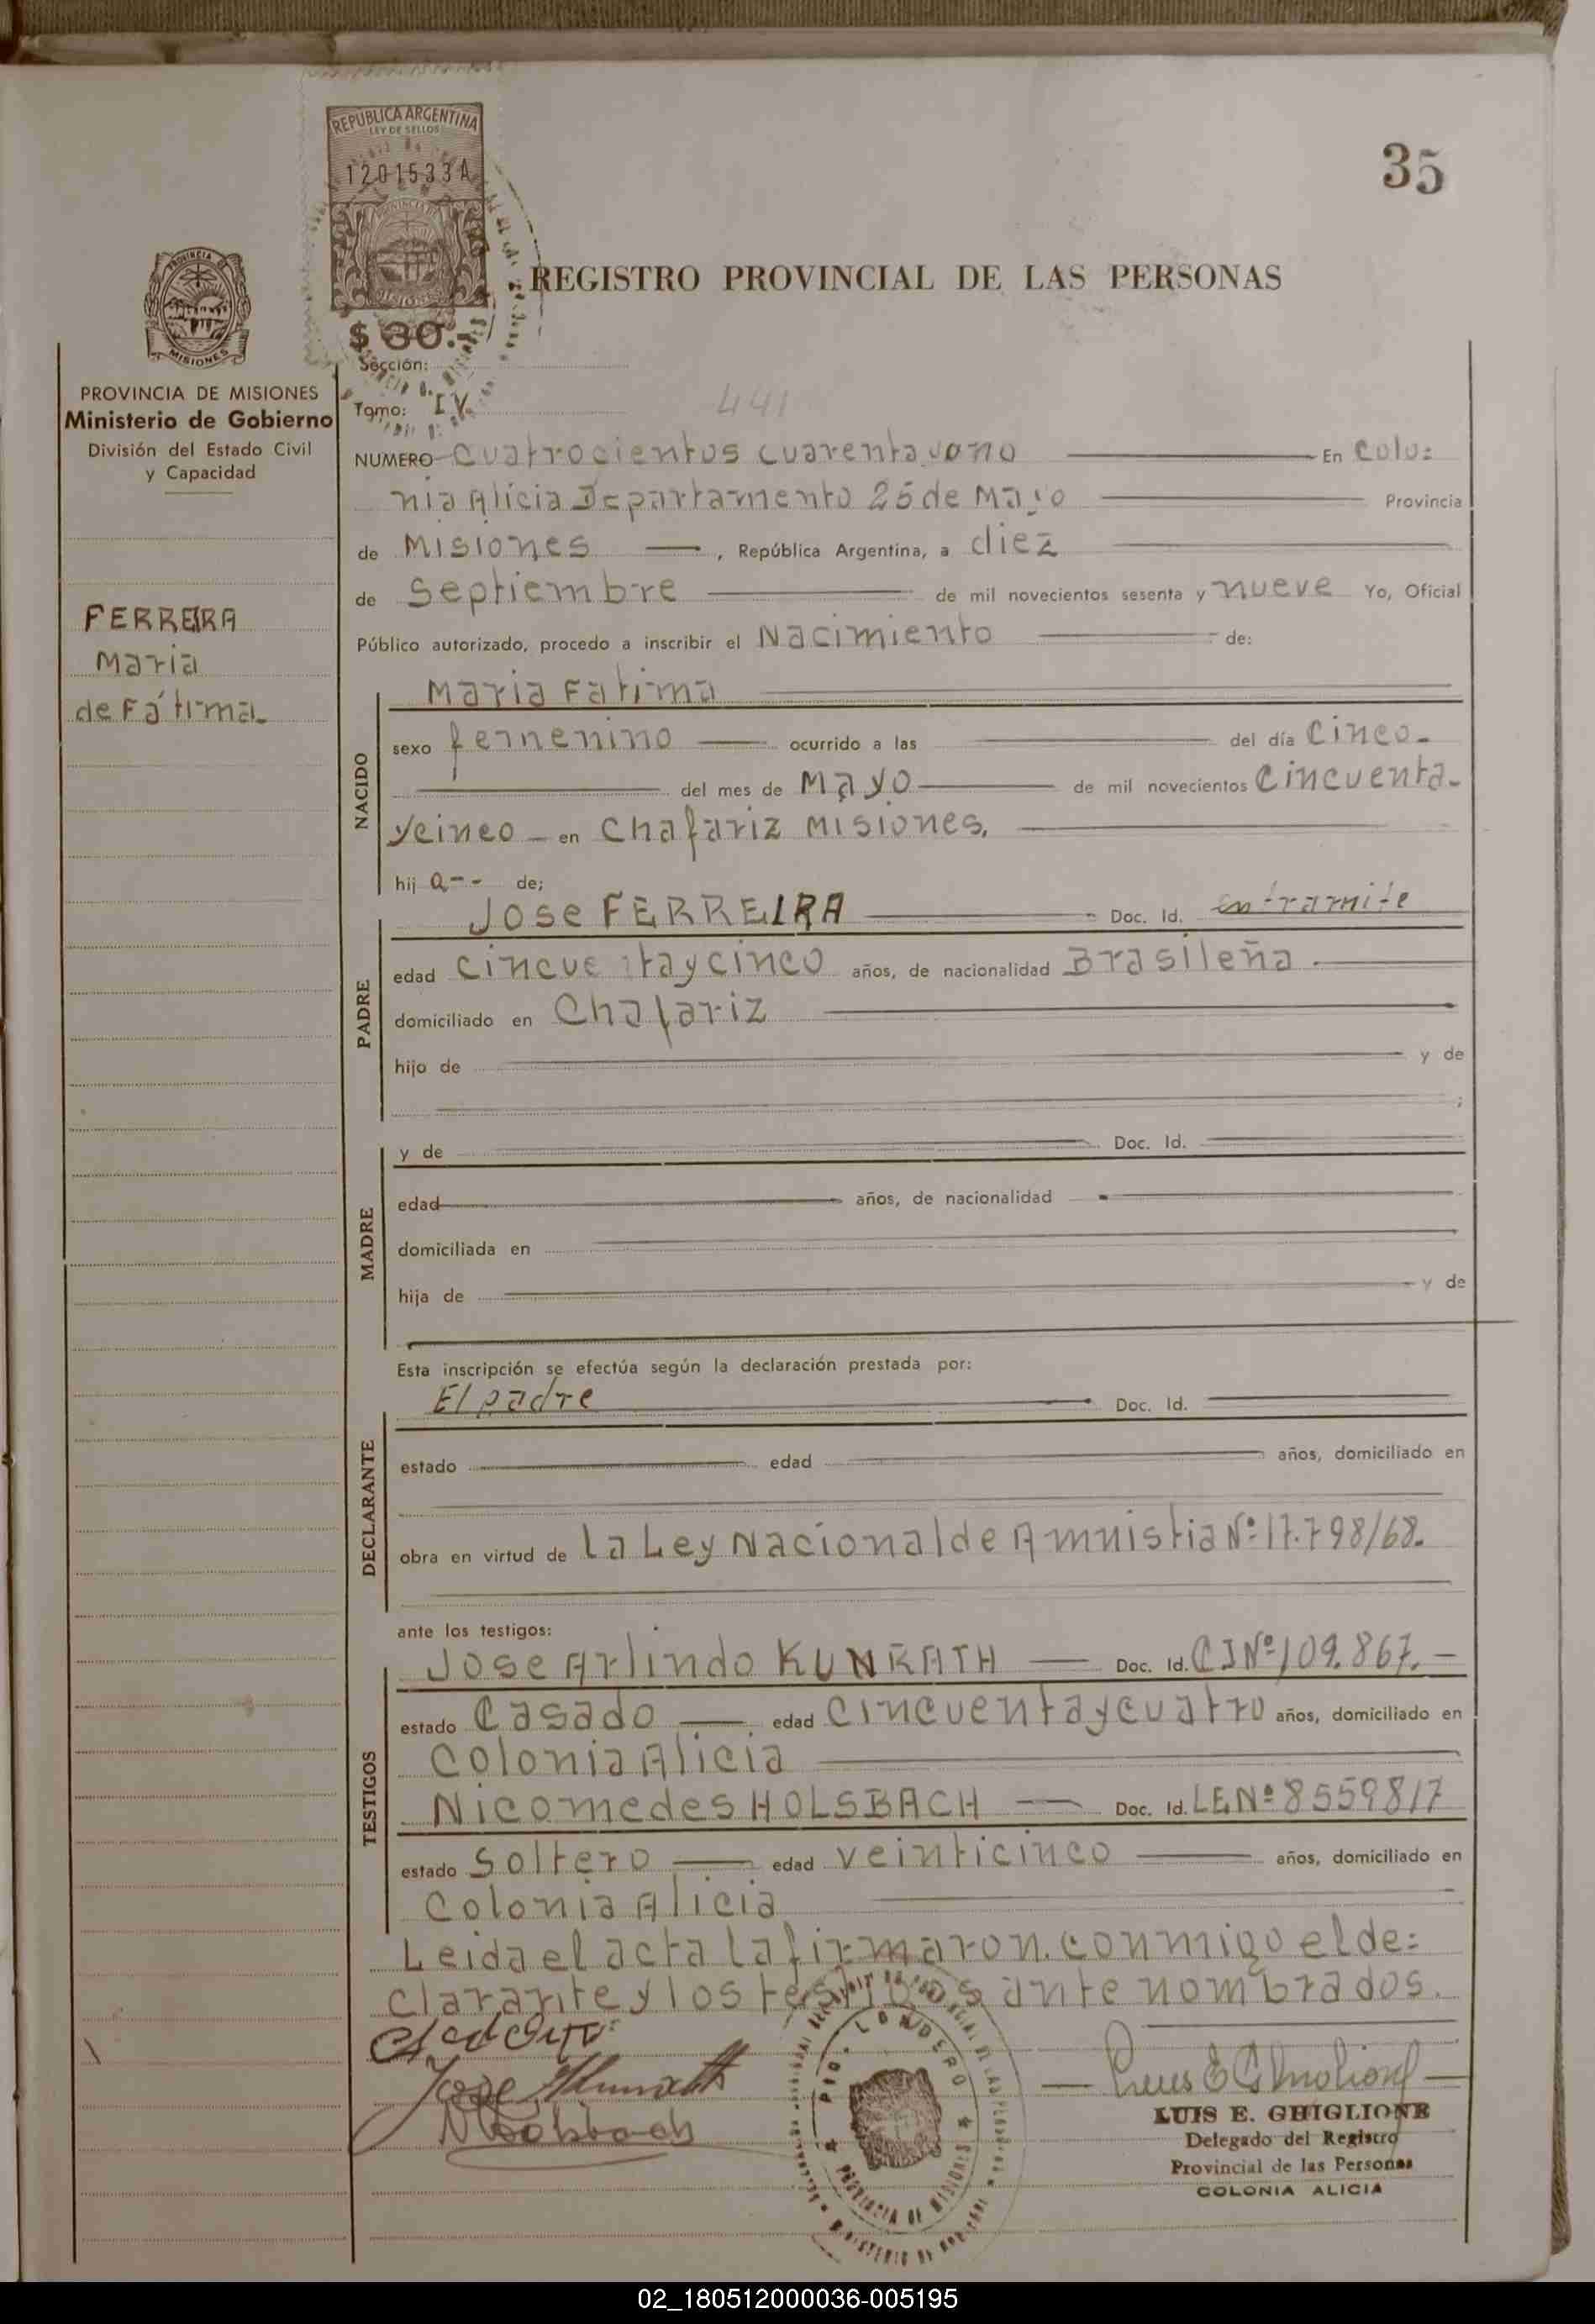 REPUBLICA ARGENTINA
LEY DE SELLOS
1201533A
PROVINCIA DE
MISIONES
$ 30.-
35
REGISTRO PROVINCIAL DE LAS PERSONAS
PROVINCIA DE
MISIONES
PROVINCIA DE MISIONES
Ministerio de Gobierno
División del Estado Civil
y Capacidad
FERREIRA
Maria
de Fátima
Sección:
Tomo: IV.
441
NUMERO Cuatrocientos cuarenta y uno En Colo=
nia Alicia Departamento 25 de Mayo Provincia
de Misiones , República Argentina, a diez
de Septiembre de mil novecientos sesenta y nueve Yo, Oficial
Público autorizado, procedo a inscribir el Nacimiento de:
NACIDO
Maria Fatima
sexo femenino ocurrido a las del día Cinco-
del mes de Mayo de mil novecientos Cincuenta-
y cinco - en Chafariz Misiones.
hij a-- de;
PADRE
Jose FERREIRA Doc. Id. en tramite
edad cincuentaycinco años, de nacionalidad Brasileña
domiciliado en Chafariz
hijo de y de
;
MADRE
y de Doc. Id.
edad años, de nacionalidad
domiciliada en
hija de y de
Esta inscripción se efectúa según la declaración prestada por:
DECLARANTE
El padre Doc. Id.
estado edad años, domiciliado en
obra en virtud de la Ley Nacional de Amnistia Nº 17.798/68.
ante los testigos:
TESTIGOS
Jose Arlindo KUNRATH Doc. Id. CI Nº 109.867.-
estado Casado edad cincuentaycuatro años, domiciliado en
Colonia Alicia
Nicomedes HOLSBACH Doc. Id. LE Nº 8559817
estado Soltero edad veinticinco años, domiciliado en
Colonia Alicia
Leida el acta la firmaron conmigo el de=
clarante y los testigos ante nombrados.
Jose Kunrath
LONDERO
PROVINCIA DE MISIONES
LUIS E. GHIGLIONE
Delegado del Registro
Provincial de las Personas
COLONIA ALICIA
02_180512000036-005195